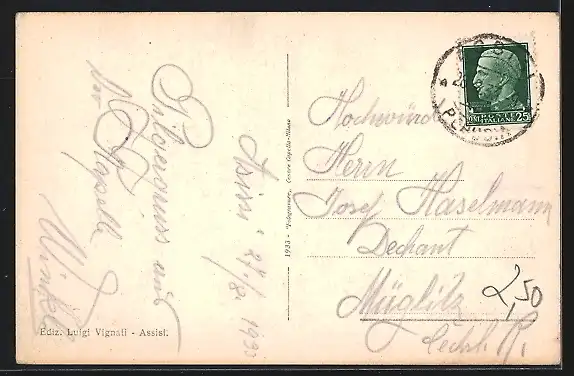 Pilgergruss aus
der Kapelle
Assisi 27./8. 1933
Ediz. Luigi Vignati - Assisi.
1933 -
Cesare Capello-Milano
POSTE
ITALIANE
25
Hochwürd
Herrn
Josef Haselmann
Dechant
Müglitz
Čechsl. R.
2,50